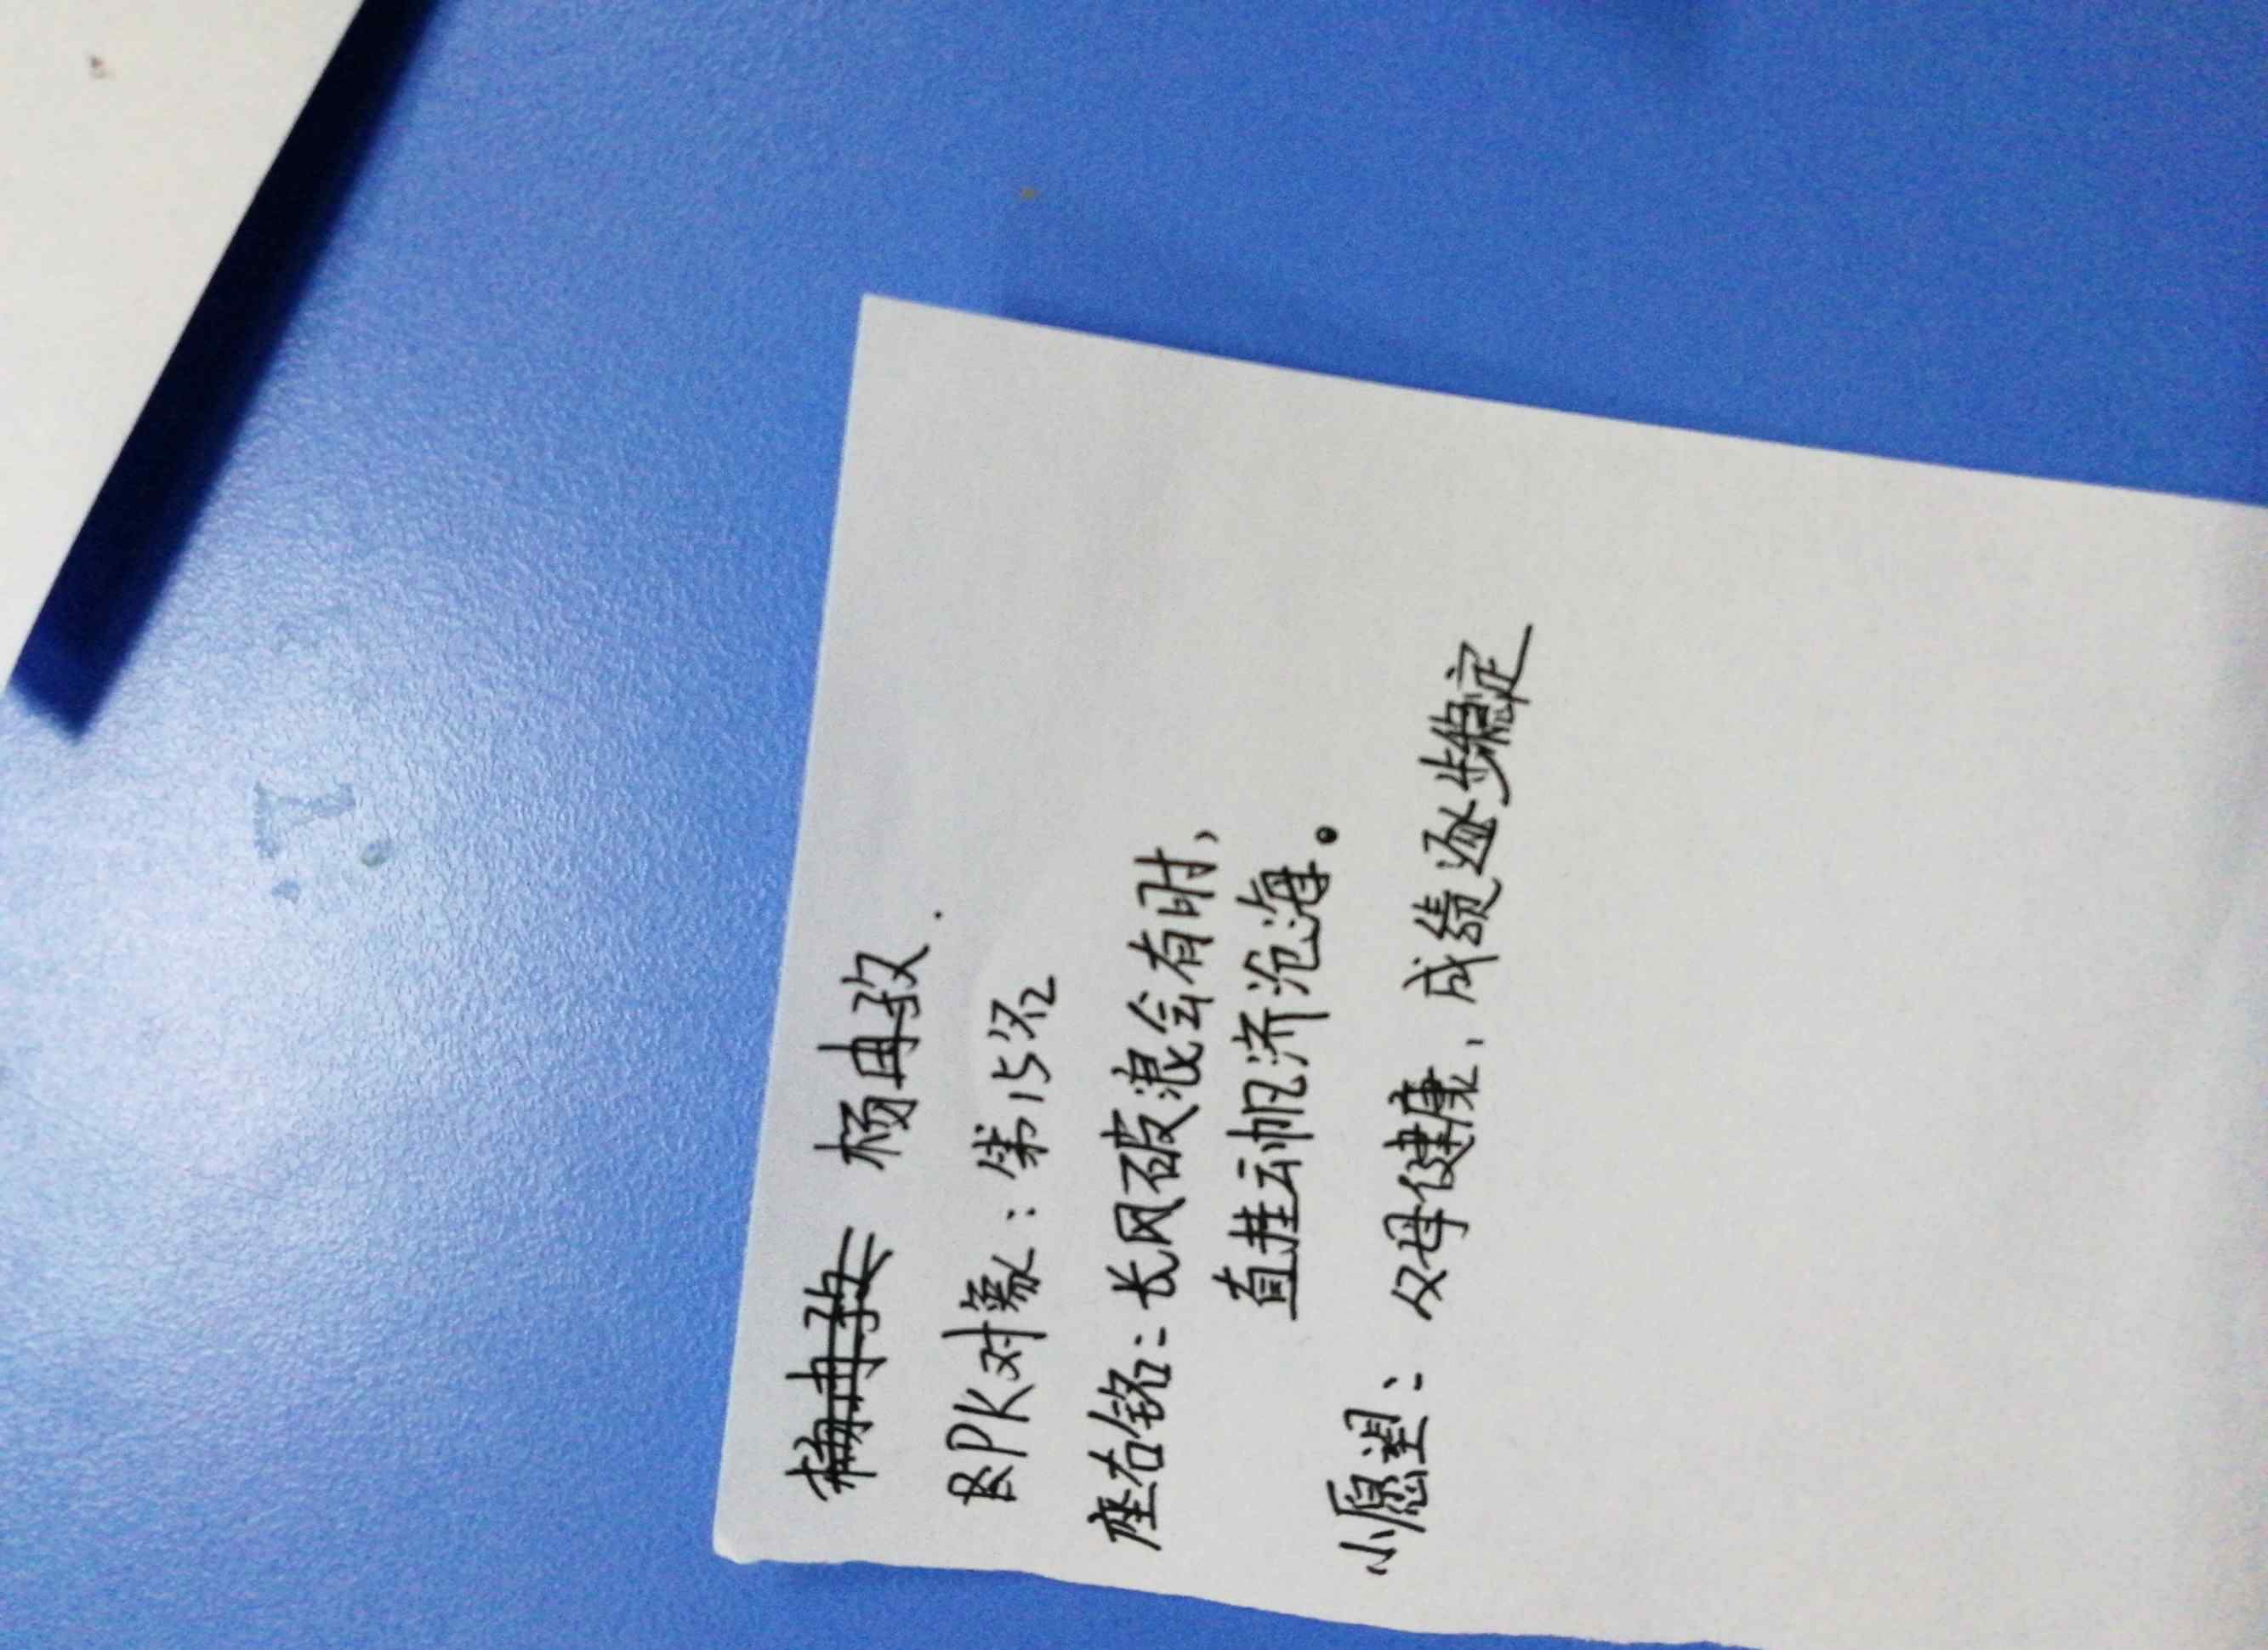 杨冉孜.
PK对象：第15名
座右铭：长风破浪会有时，
直挂云帆济沧海。
小愿望：父母健康，成绩逐步稳定